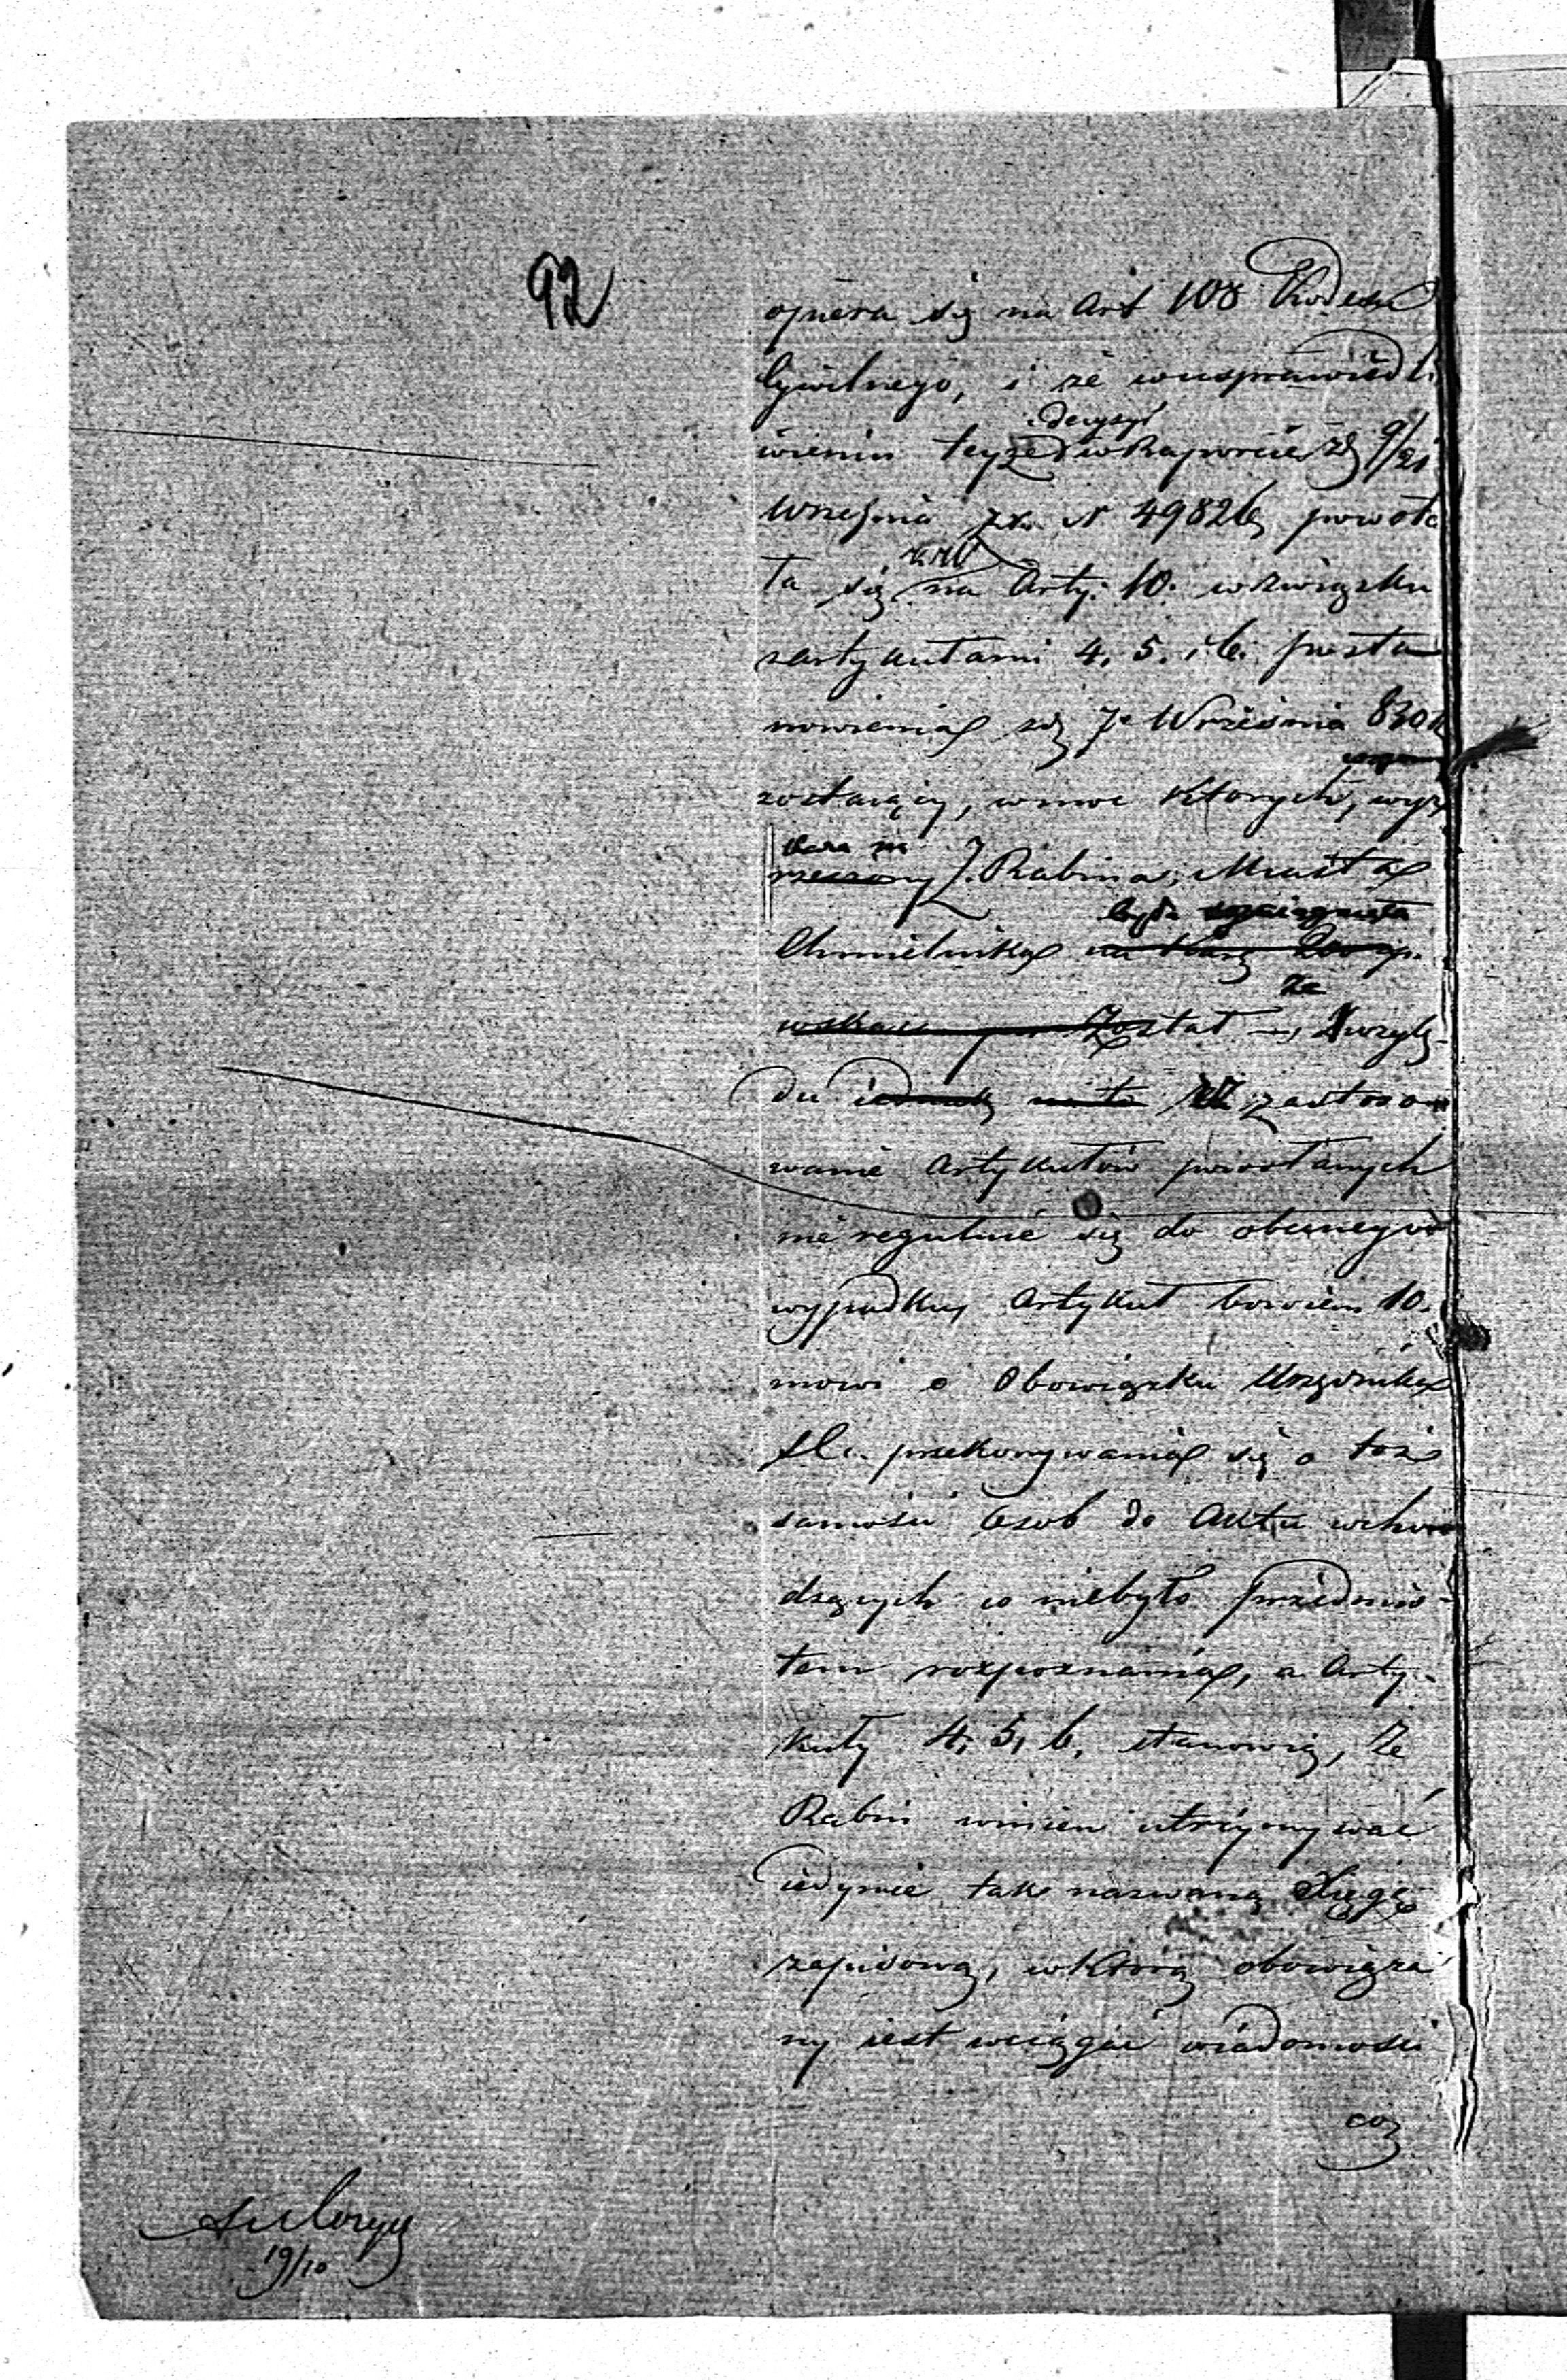 92
opiera się na Art 108 Kodexu
Cywilnego, i że w usprawiedli
decyzyi
wieniu teyże w Raporcie z d 9/21
Września N 49826 powoła
ła się na Arty: 10. w związku
z artykułami 4, 5, i 6. posta
nowienia z d 7 Września 830 r
zostaiący, w moc których, wyż
kara na
rzeczony Rabina, Miasta
była ściągnięta
Chmielnika na karę
że
wskazany został Względ
du iednak zastoso
wanie Artykułów powołanych
nie reguluie się do obecnego
wypadku, Artykuł bowiem 10.
mowi o Obowiązku Urzędnika
St C. przekonywania się o toż
samości Osob do Aktu wcho
dzących co niebyło przedmio
tem rozpoznania, a Arty
kuły 4, 5, 6, stanowią, że
Rabin winien utrzymywać
iedynie tak nazwaną Xięgę
zapisową, w którą obowiąza
ny iest wciągać wiadomości
co
19/10